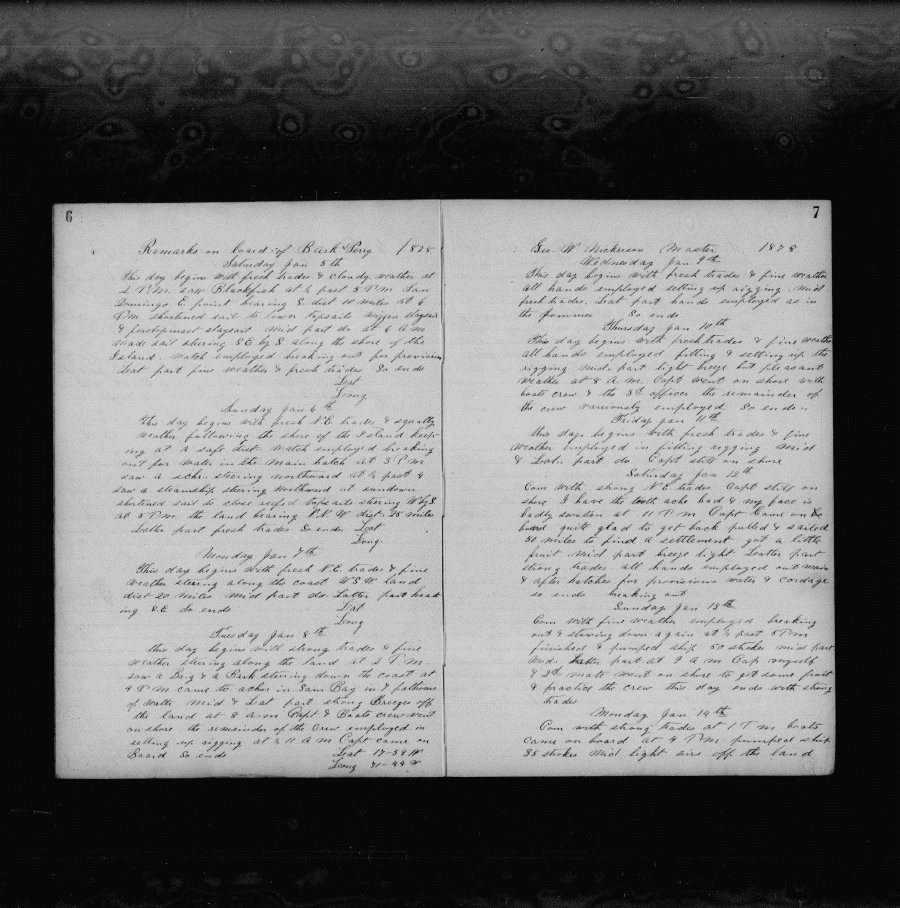 6
Remarks on board of Bark Perry 1878
Saturday Jan 5th
This day begins with fresh trades & cloudy weather at
2 P.m. saw Blackfish at ½ past 3 P.M. San
Domingo E. point bearing S. dist 10 miles at 6
P.m. shortened sail to lower topsails mizzen staysail
& foretopmast staysail mid part do at 6 A m
made sail steering S E by S along the shore of the
Island. watch employed breaking out for provision
Leat part fine weather & fresh trades So ends
Leat
Long
Sunday Jan 6th
This day begins with fresh N.E. trades & squally
weather following the shore of the Island keep-
ing at a safe dist. Watch employed breaking
out for water in the main hatch at 3 P m
saw a schr. steering northward at ½ past 4
saw a steamship steering northward at sundown
shortened sail to close reefed topsails steering W by S
at 5 P.m. the land bearing N.N.W. dist. 25 miles
Latter part fresh trades So ends Leat
Long.
Monday Jan 7th
This day begins with fresh N.E. trades & fine
weather steering along the coast W.S.W. land
dist 20 miles mid part do Latter part head
ing S.E. So ends Leat
Long
Tuesday Jan 8th
this day begins with strong trades & fine
weather steering along the land at 2 P.m.
saw a Brig & a Bark steering down the coast at
4 P m came to achor in Sam Bay in 7 fathoms
of water mid & Lat part strong Breezes off
the land at 8 a.m Capt & Boats crew went
on shore the remainder of the Crew employed in
setting up rigging at ½ 11 A m Capt came on
Board So ends Leat 17-59 N
Long 71-44 W
7
Geo W Nickerson Master 1878
Wednesday Jan 9th
This day begins with fresh trades & fine weather
all hands employed setting up rigging mid
fresh trades. Leat part hands employed as in
the fommer So ends
Thursday Jan 10th
This day begins with fresh trades & fine weather
all hands employed fitting & setting up the
rigging mid part light breeze but pleasant
weather at 8 A.m. Capt went on shore with
boats crew & the 3d officer the remainder of
the crew variously employed So ends.
Friday Jan 11th
this day begins with fresh trades & fine
weather employed in fitting rigging mid
& Leat. part do Capt still on shore
Saturday Jan 12th
Com with strong N E trades Capt still on
shore I have the tooth ache bad & my face is
badly swolen at 11 P m Capt Came on
board quite glad to get back pulled & sailed
50 miles to find a settlement got a little
fruit mid part breeze light Leatter part
strong trades. all hands employed out main
& after hatches for provisions water & cordage
so ends breaking out
Sunday Jan 13th
Com with fine weather employed breaking
out & stowing down again at ½ past 5 P m
finished & pumped ship 50 strokes mid part
mod. Latter part at 9 A m Cap myself
& 2nd mate went on shore to get some fruit
& practice the crew this day ends with strong
trades
Monday Jan 14th
Com with strong trades at 1 P m boats
came on board at 4 P.m. pumped ship
35 strokes Mid light airs off the land